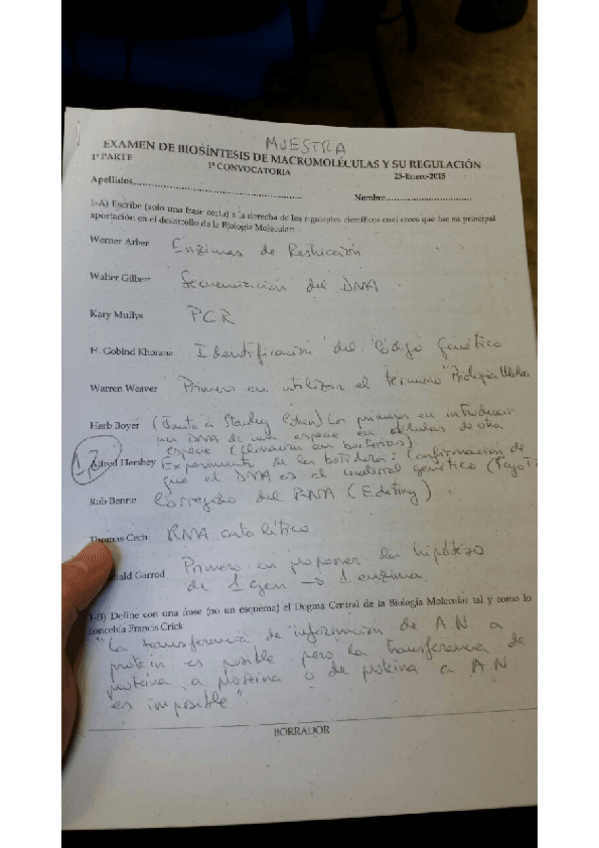 MUESTRA
EXAMEN DE BIOSÍNTESIS DE MACROMOLÉCULAS Y SU REGULACIÓN
1ª PARTE
1ª CONVOCATORIA
23-Enero-2015
Apellidos
Nombre
1-A) Escribe (solo una frase corta) a la derecha de los siguientes científicos cual crees que fue su principal
aportación en el desarrollo de la Biología Molecular:
Werner Arber Enzimas de Restricción
Walter Gilbert Secuenciación del DNA
Kary Mullys PCR
H. Gobind Khorana Identificación del Código Genético
Warren Weaver Primero en utilizar el término "Biología Molec
Herb Boyer (Junto a Stanley Cohen) Los primeros en introducir
un DNA de una especie en células de otra
especie (clonación en bacterias)
Alfred Hershey Experimento de la batidora: Confirmación de
que el DNA es el material genético (Fago T
Rob Benne Corregido del RNA (Editing)
Thomas Cech RNA catalítico
ald Garrod Primero en proponer la hipótesis
de 1 gen → 1 enzima
1-B) Define con una frase (no un esquema) el Dogma Central de la Biología Molecular tal y como lo
concebía Francis Crick
"La transferencia de información de A.N a
protein es posible pero la transferencia de
proteína a proteína o de proteína a A N
es imposible"
BORRADOR